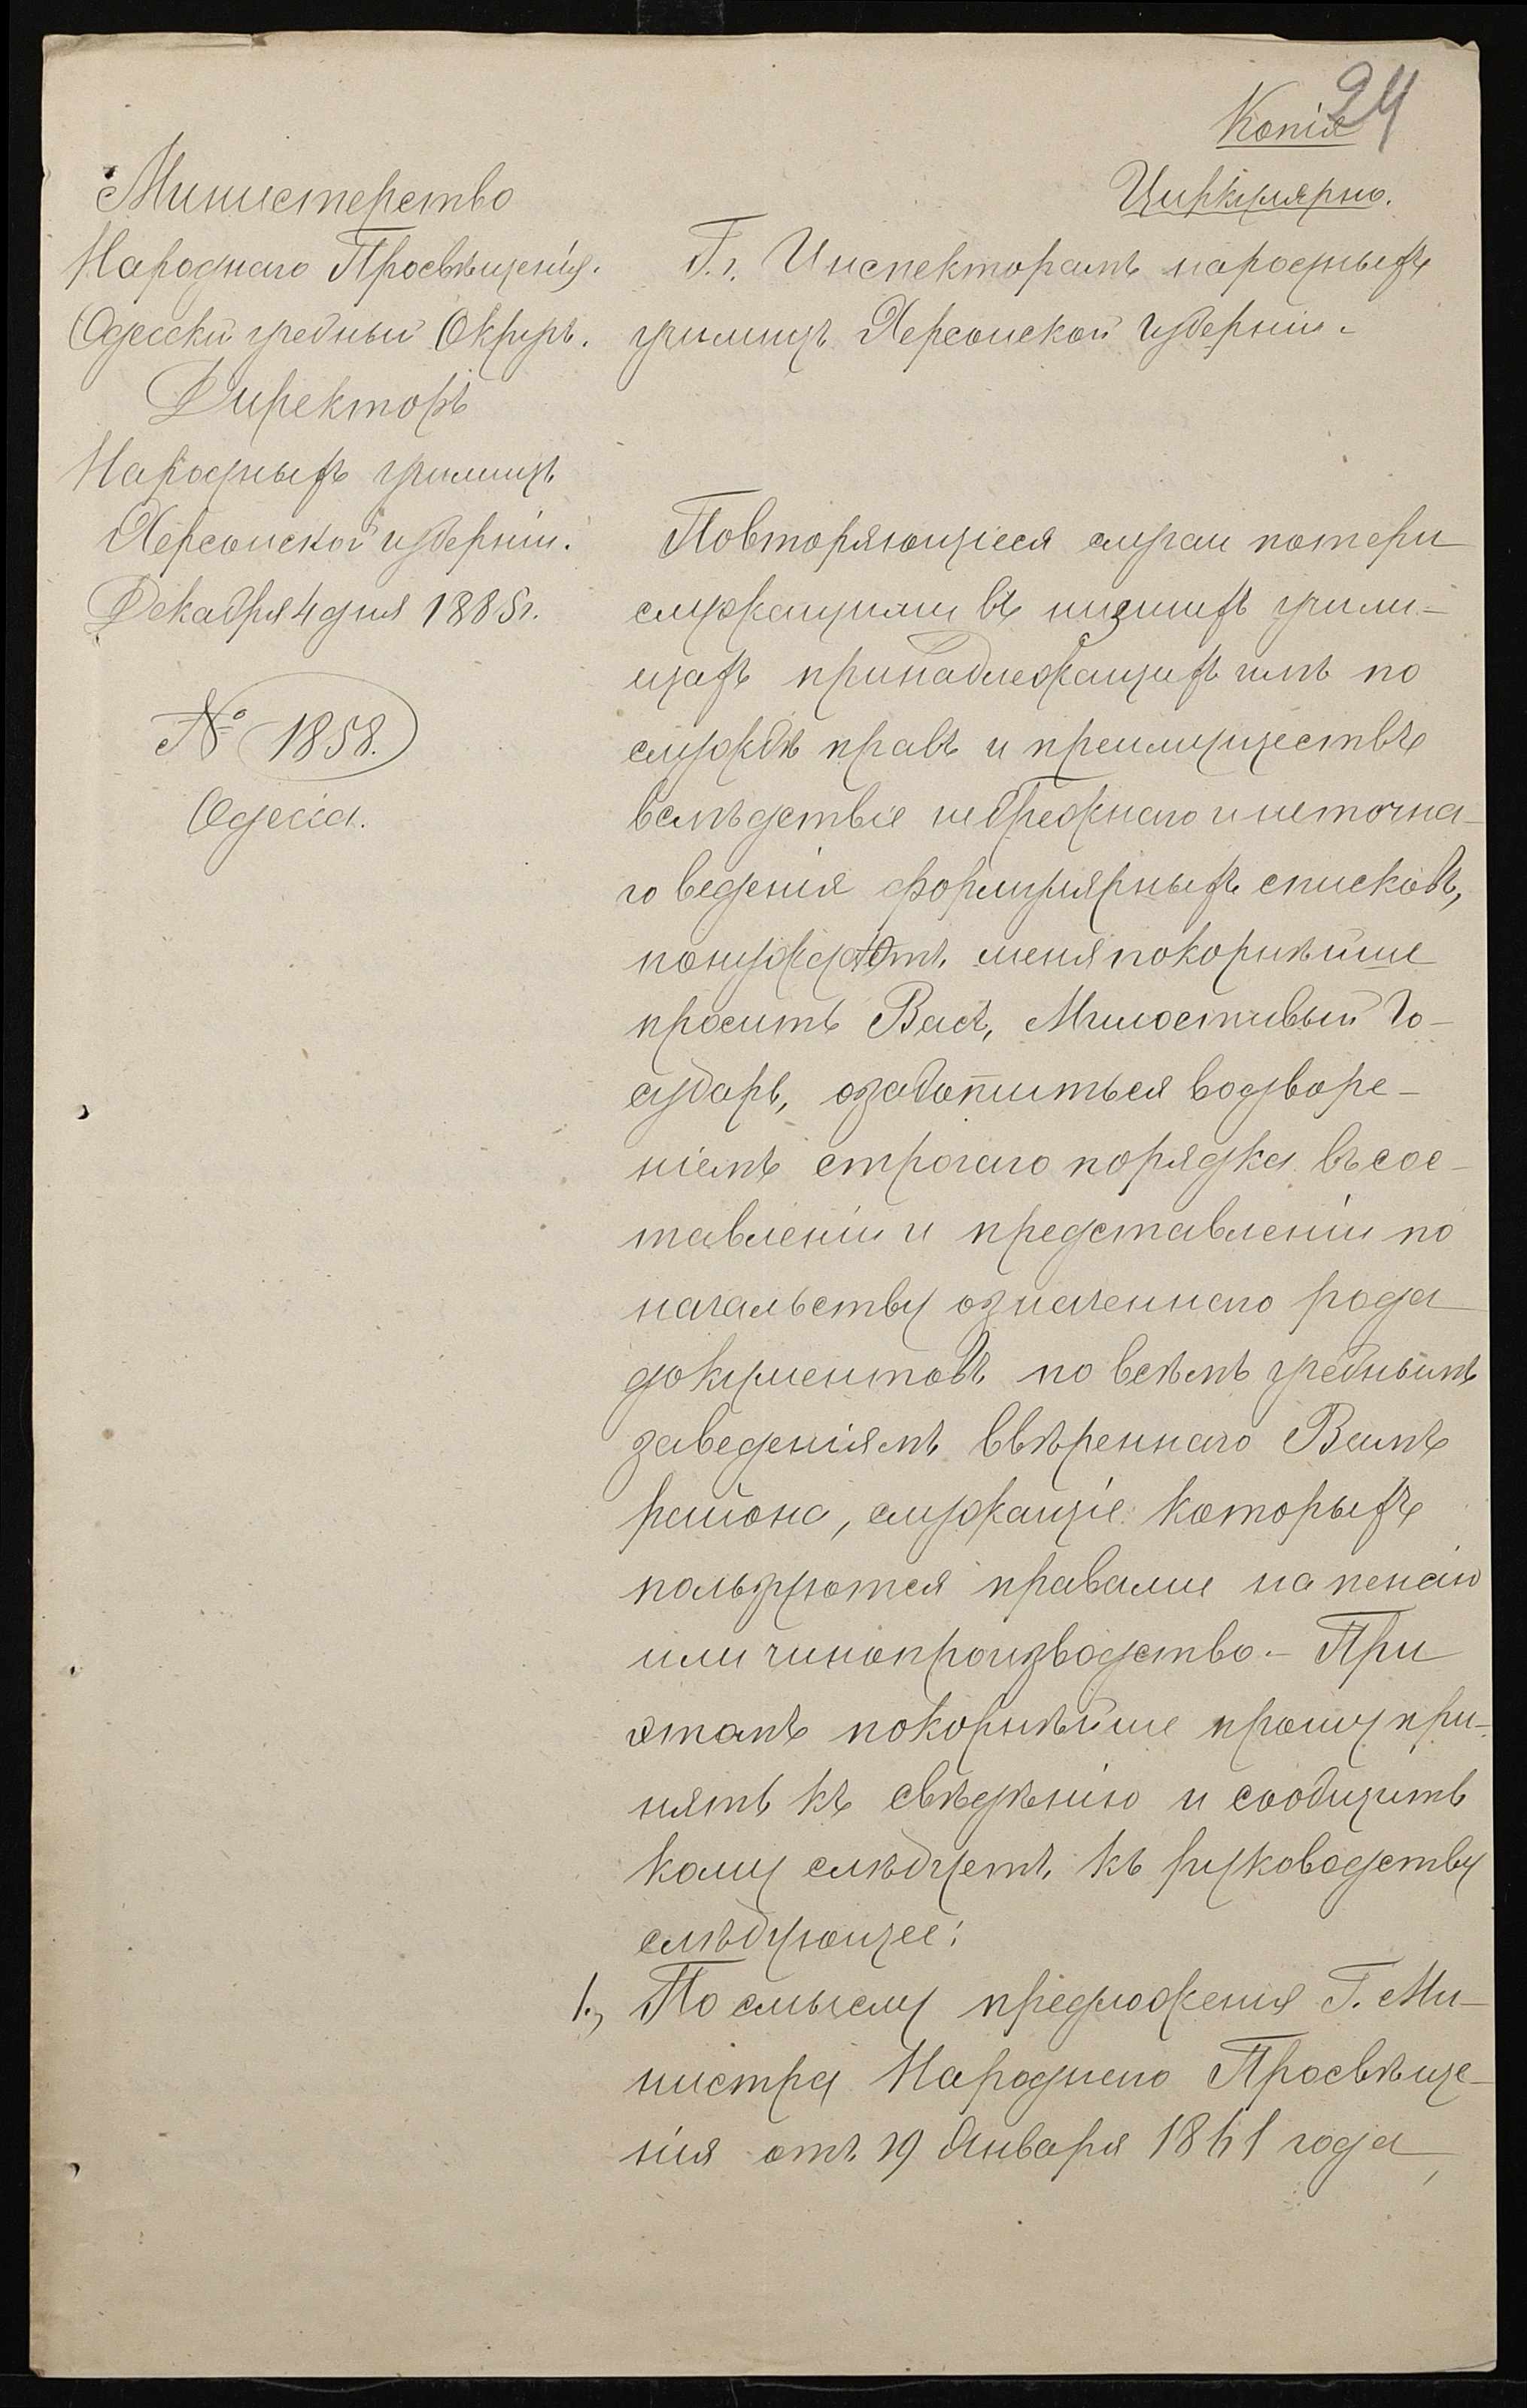 24
Копія
Циркулярно.
Министерство
Народнаго Просвѣщенія.
Одесскій учебный Округъ.
Директоръ
Народныхъ училищъ
Херсонской губерніи.
Декабря 4 дня 1885 г.
№ 1858.
Одесса.
Г.г. Инспекторамъ народныхъ
училищъ Херсонской губерніи.
Повторяющіеся случаи потери
служащими въ низшихъ учили-
щахъ принадлежащихъ имъ по
службѣ правъ и преимуществъ
вслѣдствіе небрежнаго и неточна-
го веденія формулярныхъ списковъ,
понуждаетъ меня покорнѣйше
просить Васъ, Милостивый Го-
сударь, озаботиться водворе-
ніемъ строгаго порядка въ сос-
тавленіи и представленіи по
начальству означеннаго рода
документовъ по всѣмъ учебнымъ
заведеніямъ ввѣреннаго Вамъ
района, служащіе которыхъ
пользуются правами на пенсію
или чинопроизводство.- При
этомъ покорнѣйше прошу при-
нять къ свѣдѣнію и сообщить
кому слѣдуетъ къ руководству
слѣдующее:
1., По смыслу предложенія Г. Ми-
нистра Народнаго Просвѣще-
нія отъ 19 Января 1861 года,